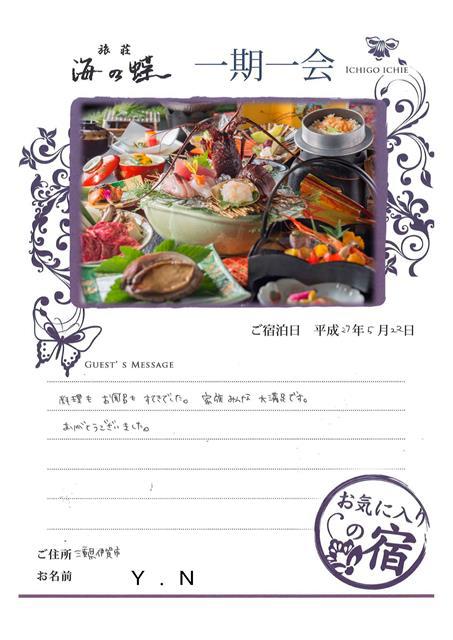 旅荘
海の蝶
一期一会
ICHIGO ICHIE
ご宿泊日 平成27年5月22日
GUEST'S MESSAGE
料理も お風呂も すてきでした。 家族みんな 大満足です。
ありがとうございました。
お気に入り
の宿
ご住所 三重県伊賀市
お名前 Y.N